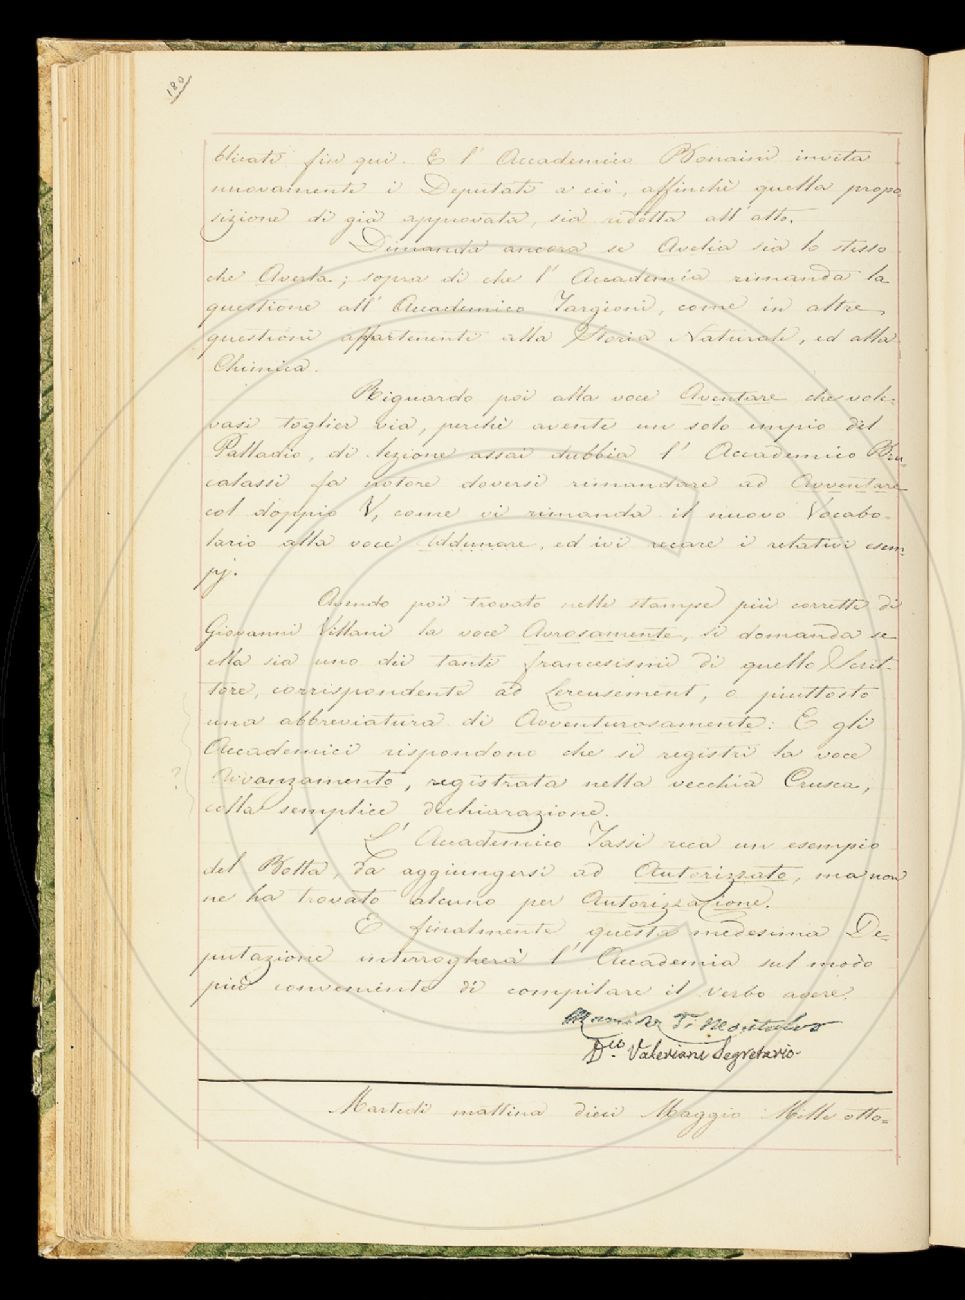 180
blicati fin qui. E l' Accademico Bonaini invita
nuovamente i Deputati a ciò, affinchè quella propo-
sizione di già approvata, sia ridotta all'atto.
Dimanda ancora se Avelia sia lo stesso
che Averla; sopra di che l' Accademia rimanda la
questione all' Accademico Targioni, come in altre
questioni appartenenti alla Storia Naturale, ed alla
Chimica.
Riguardo poi alla voce Aventare che vole-
vasi toglier via, perchè avente un solo empio del
Palladio, di lezione assai dubbia l' Accademico Bru-
calassi fa notare doversi rimandare ad Avventare
col doppio V, come vi rimanda il nuovo Vocabo-
lario alla voce Addunare, ed ivi recare i relativi esem-
pj.
Avendo poi trovato nelle stampe più corrette di
Giovanni Villani la voce Avrosamente, si domanda se
ella sia uno dei tanti francesismi di quello Scrit-
tore, corrispondente ad , o piuttosto
una abbreviatura di Avventurosamente: E gli
Accademici rispondono che si registri la voce
? Avanzamento, registrata nella vecchia Crusca,
colla semplice dichiarazione.
L' Accademico Tassi reca un esempio
del Botta, da aggiungersi ad Autorizzato, ma non
ne ha trovato alcuno per Autorizzazione.
E finalmente questa medesima De-
putazione interrogherà l' Accademia sul modo
più conveniente di compilare il verbo avere.
D.co Valeriani Segretario
Martedì mattina dieci Maggio Mille otto-